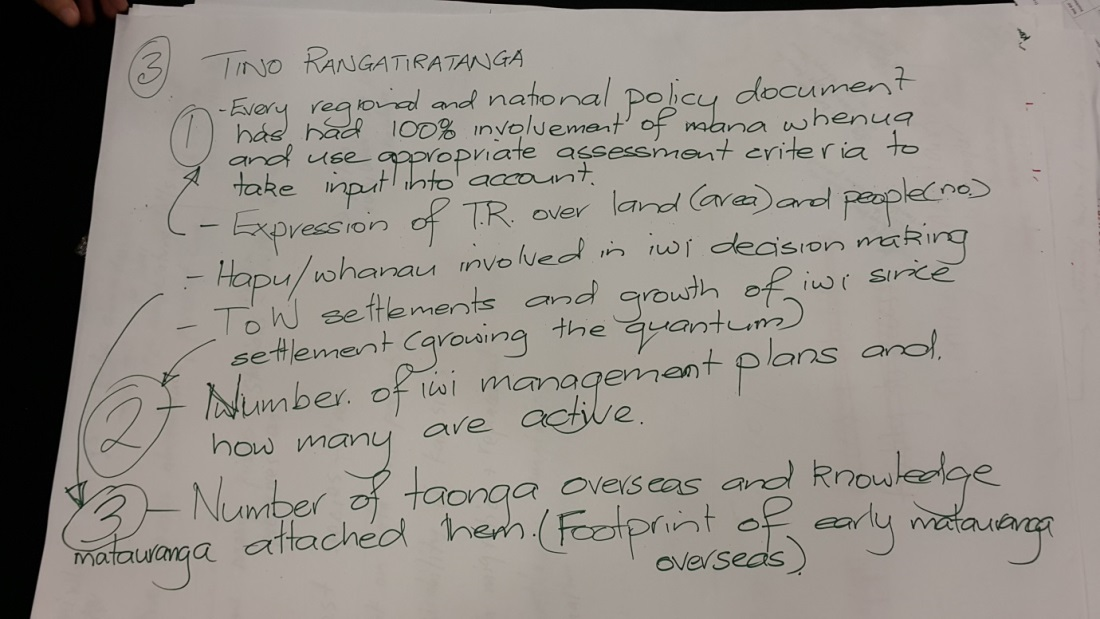 ③ TINO RANGATIRATANGA
- Every regional and national policy document
① has had 100% involvement of mana whenua
and use appropriate assessment criteria to
take input into account.
- Expression of T.R. over land (area) and people (no.)
- Hapu/whanau involved in iwi decision making
- ToW settlements and growth of iwi since
settlement (growing the quantum)
② - Number of iwi management plans and
how many are active.
③ - Number of taonga overseas and knowledge
matauranga attached them. (Footprint of early matauranga
overseas)